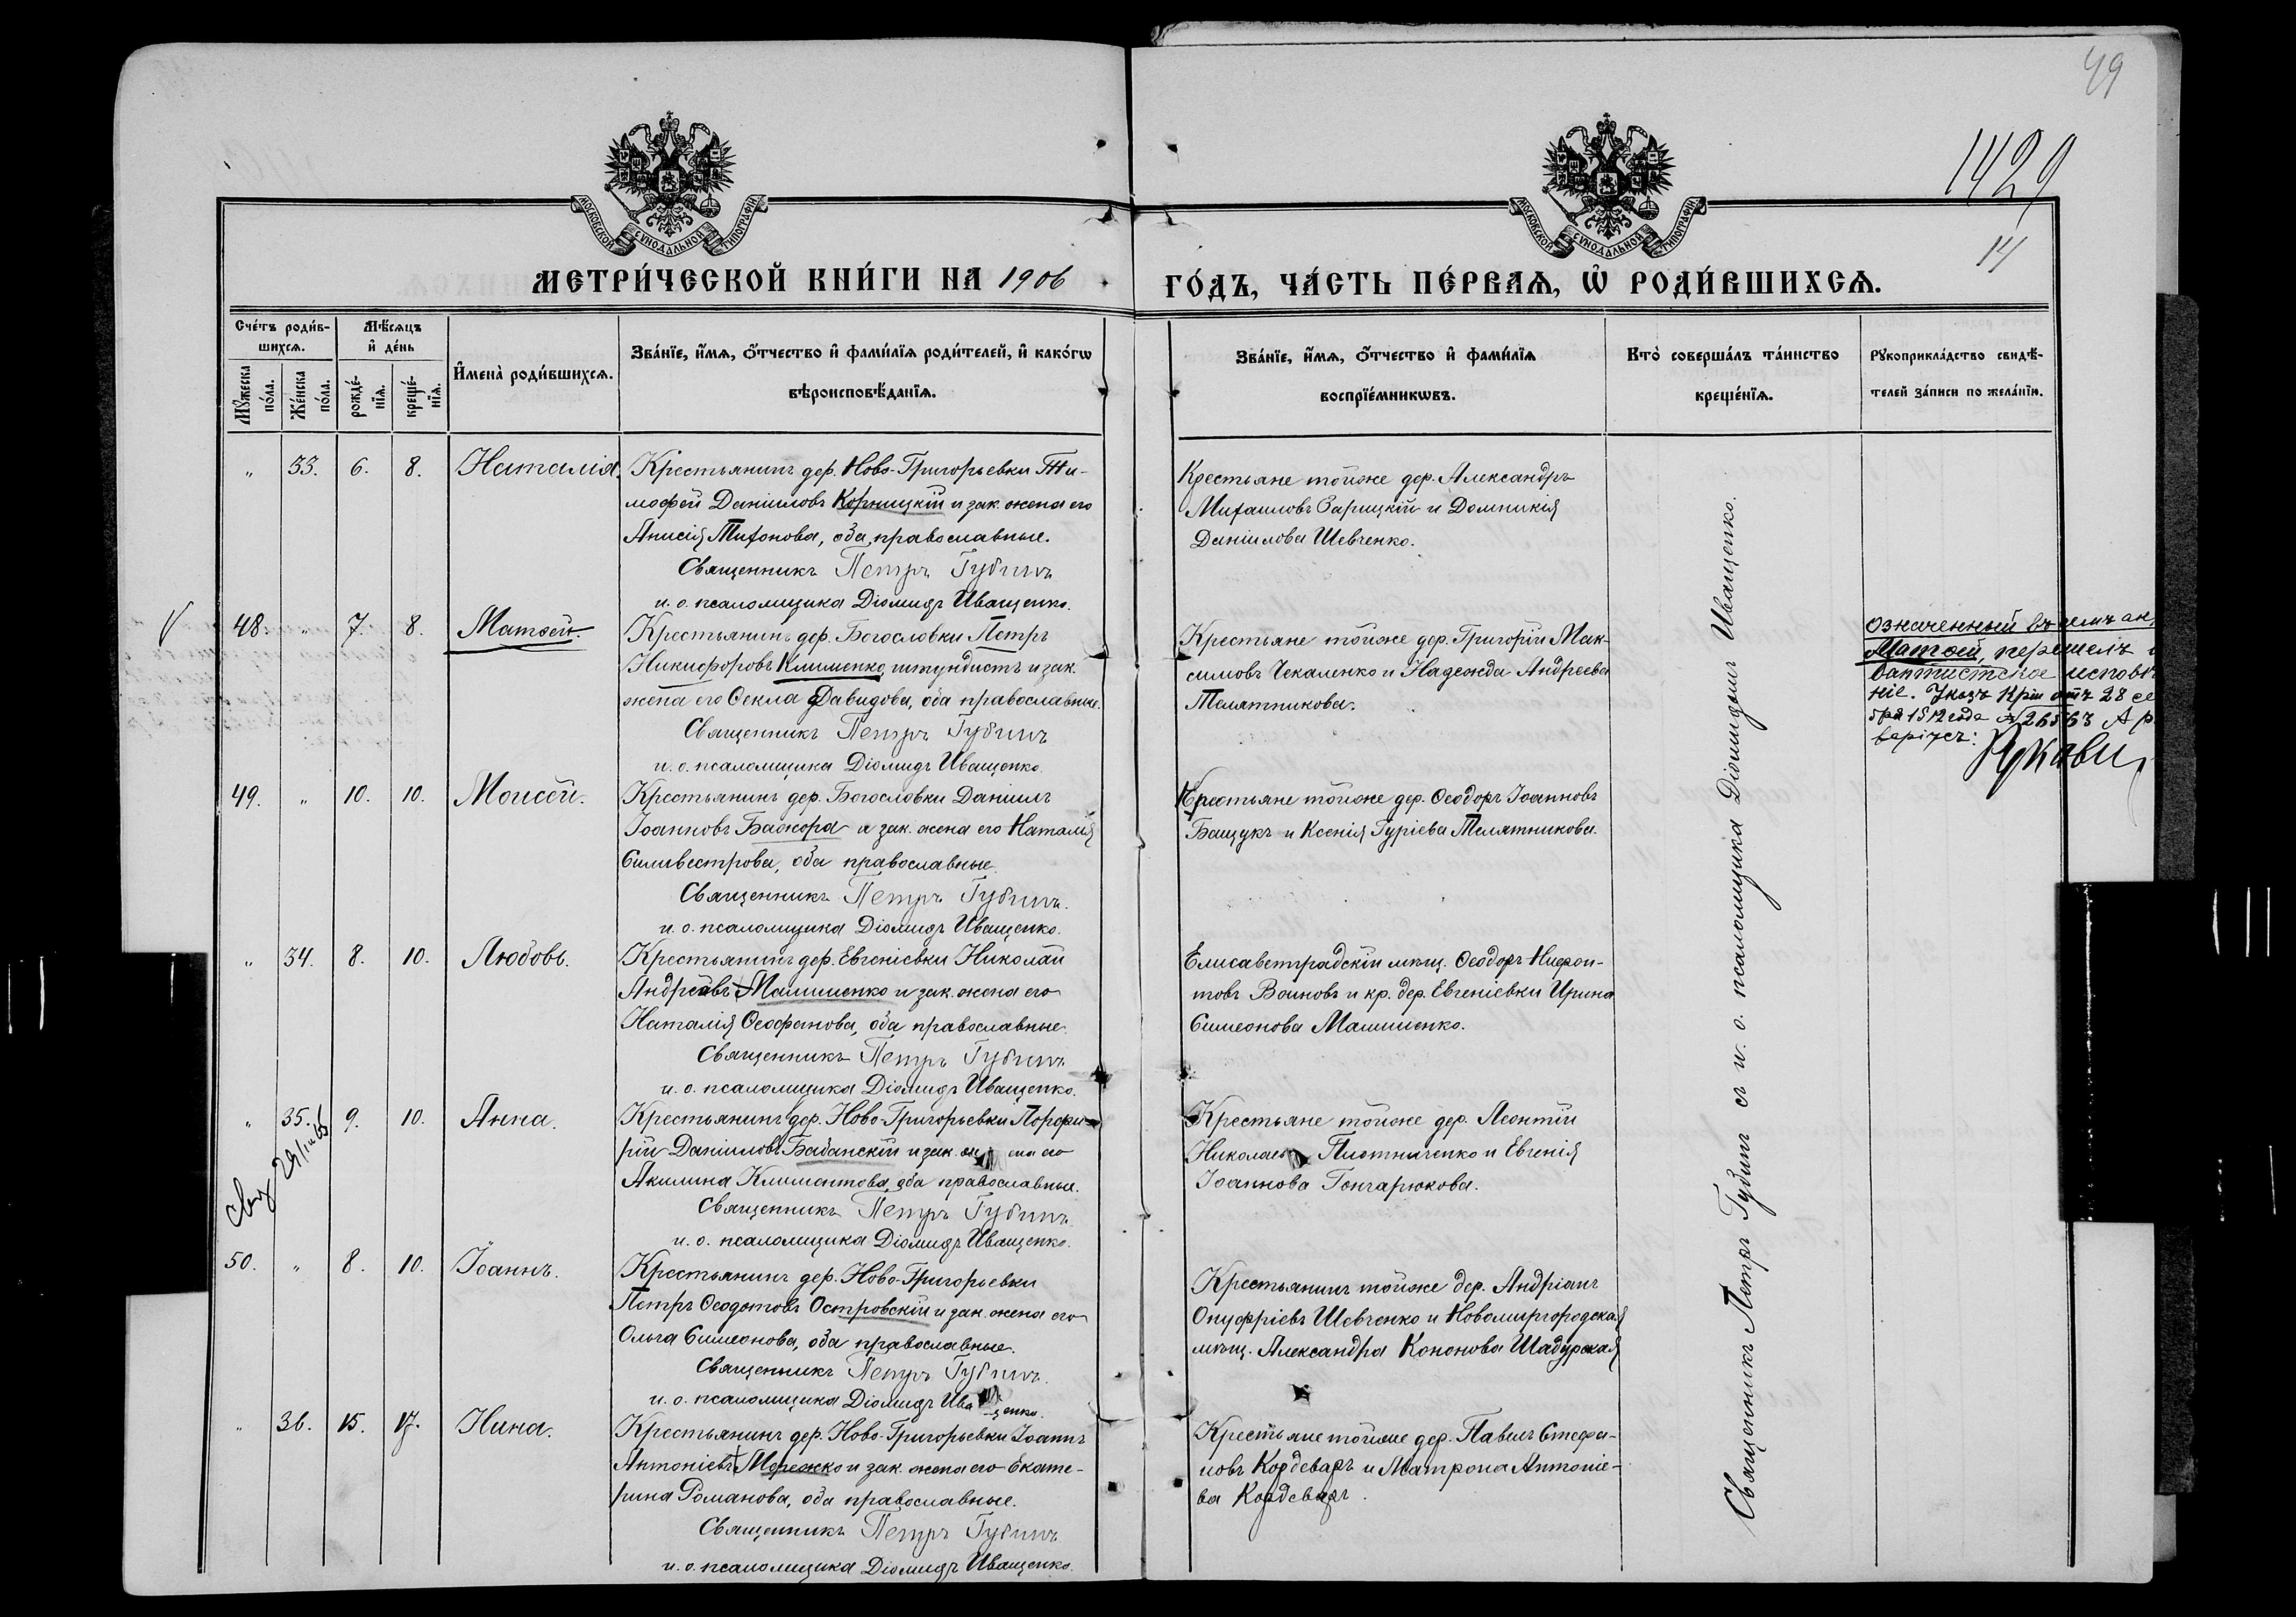 49
1429
14
МОСКОВСКОЙ СУНОДАЛЬНОЙ ТИПОГРАФІИ
МОСКОВСКОЙ СУНОДАЛЬНОЙ ТИПОГРАФІИ
МЕТРИ́ЧЕСКОЙ КНИ́ГИ НА 1906
ГО́ДЪ, ЧА́СТЬ ПЕ́РВАѦ, Ѡ҆ РОДИ́ВШИХСѦ.
Сче́тъ роди́в-
шихсѧ.
Мѹ́жеска по́ла.
Же́нска по́ла.
Мѣ́сѧцъ
и҆ де́нь
рожде́-
нїѧ.
креще́-
нїѧ.
И҆мена̀ роди́вшихсѧ.
Зва́нїе, и҆́мѧ, ѻ҆́тчество и҆ фами́лїѧ роди́телей, и҆ како́гѡ
вѣроисповѣ́данїѧ.
Зва́нїе, и҆́мѧ, ѻ҆́тчество и҆ фами́лїѧ
воспрїе́мникѡвъ.
Кто̀ соверша́лъ та́инство
креще́нїѧ.
Рѹкоприкла́дство свидѣ́-
телей за́писи по жела́нїю.
" 33. 6. 8. Наталія.
Крестьянинъ дер. Ново-Григорьевки Ти-
мофей Даніиловъ Корницкій и зак. жена его
Анисія Тихонова, оба православные.
Священникъ Петръ Губинъ
и. о. псаломщика Діомидъ Иващенко.
Крестьяне тойже дер. Александръ
Михаиловъ Зарицкій и Домникія
Даніилова Шевченко.
V 48. " 7. 8. Матѳей.
Крестьянинъ дер. Богословки Петръ
Никифоровъ Клименко, штундистъ и зак.
жена его Ѳекла Давидова, оба православные.
Священникъ Петръ Губинъ
и. о. псаломщика Діомидъ Иващенко.
Крестьяне тойже дер. Григорій Мак-
симовъ Чекаленко и Надежда Андреева
Телятникова.
Означенный въ семъ ак
Матѳей, перешелъ
баптистское исповѣ
ніе. Указъ
верігсъ:
49. " 10. 10. Моисей.
Крестьянинъ дер. Богословки Даніилъ
Іоанновъ Бажора и зак. жена его Наталія
Сильвестрова, оба православные.
Священникъ Петръ Губинъ.
и. о. псаломщика Діомидъ Иващенко.
Крестьяне тойже дер. Ѳеодоръ Іоанновъ
Бащукъ и Ксенія Гуріева Телятникова.
" 34. 8. 10. Любовь.
Крестьянинъ дер. Евгеніевки Николай
Андреевъ Малименко и зак. жена его
Наталія Ѳеофанова, оба православные.
Священникъ Петръ Губинъ
и. о. псаломщика Діомидъ Иващенко.
Елисаветградскій мѣщ. Ѳеодоръ Нифон-
товъ Воиновъ и кр. дер. Евгеніевки Ирина
Симеонова Малименко.
" 35. 9. 10. Анна.
Крестьянинъ дер. Ново-Григорьевки Порфи-
рій Даніиловъ Бабанскій и зак. жена его
Акилина Климентова, оба православные.
Священникъ Петръ Губинъ.
и. о. псаломщика Діомидъ Иващенко.
Крестьяне тойже дер. Леонтій
Николаевъ Плотниченко и Евгенія
Іоаннова Гончарюкова.
50. " 8. 10. Іоаннъ.
Крестьянинъ дер. Ново-Григорьевки
Петръ Ѳеодотовъ Островскій и зак. жена его
Ольга Симеонова, оба православные.
Священникъ Петръ Губинъ.
и. о. псаломщика Діомидъ Иващенко.
Крестьянинъ тойже дер. Андріанъ
Онуфріевъ Шевченко и Новомиргородская
мѣщ. Александра Кононова Шадурская
" 36. 15. 17. Нина.
Крестьянинъ дер. Ново-Григорьевки Іоаннъ
Антоніевъ Мережко и зак. жена его Екате-
рина Романова, оба православные.
Священникъ Петръ Губинъ
и. о. псаломщика Діомидъ Иващенко.
Крестьяне тойже дер. Павелъ Стефа-
новъ Кордеваръ и Матрона Антоніе-
ва Кордеваръ.
Священникъ Петръ Губинъ съ и. о. псаломщика Діомидомъ Иващенко.